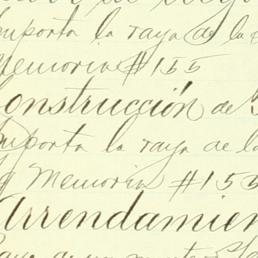 importa la raya de la
Memoria #155
Construcción de
importa la raya de la
Memoria #155
Arrendamien